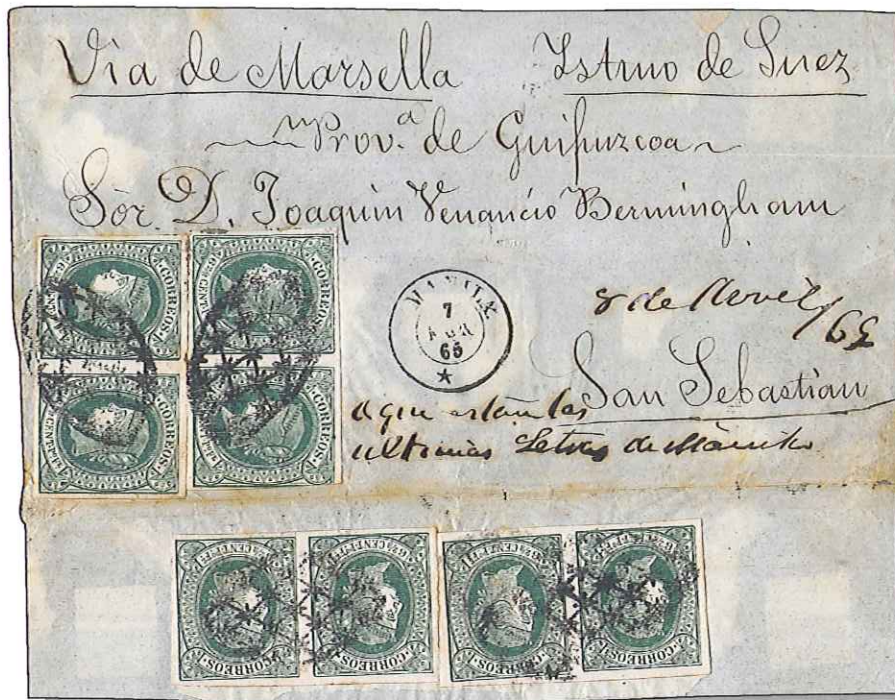 Via de Marsella Istmo de Suez
Prov.ª de Guipuzcoa
Sor D. Joaquin Venancio Bermingham
MANILA
7
ABR
65
8 de Abril/65
San Sebastian
aqui estan las
ultimas Letras de Manila
CORREOS
CORREOS
CORREOS
CORREOS
6 2/8 CENT PF
CORREOS
6 2/8 CENT PF
CORREOS
6 2/8 CENT PF
CORREOS
CORREOS